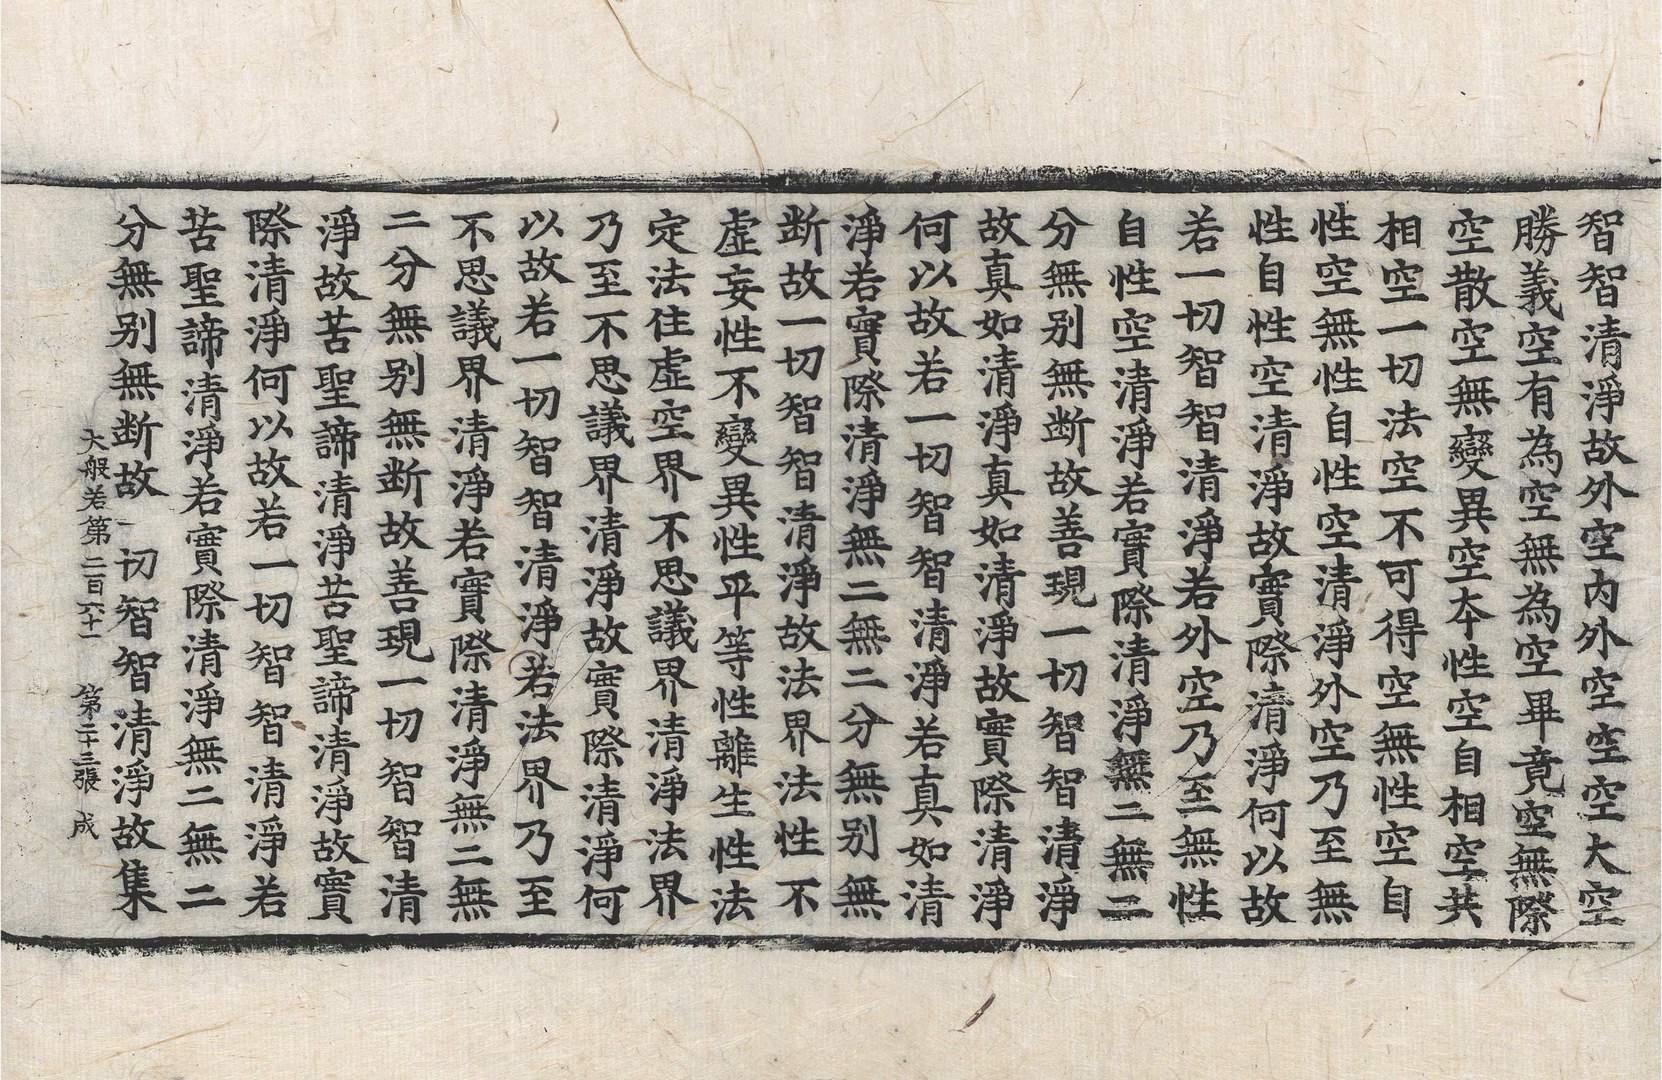 智智清淨故外空內外空空空大空
勝義空有為空無為空畢竟空無際
空散空無變異空本性空自相空共
相空一切法空不可得空無性空自
性空無性自性空清淨外空乃至無
性自性空清淨故實際清淨何以故
若一切智智清淨若外空乃至無性
自性空清淨若實際清淨無二無二
分無別無斷故善現一切智智清淨
故真如清淨真如清淨故實際清淨
何以故若一切智智清淨若真如清
淨若實際清淨無二無二分無別無
断故一切智智清淨故法界法性不
虛妄性不變異性平等性離生性法
定法住虛空界不思議界清淨法界
乃至不思議界清淨故實際清淨何
以故若一切智智清淨若法界乃至
不思議界清淨若實際清淨無二無
二分無別無断故善現一切智智清
淨故苦聖諦清淨苦聖諦清淨故實
際清淨何以故若一切智智清淨若
苦聖諦清淨若實際清淨無二無二
分無別無断故一切智智清淨故集
大般若第二百六十一 第二十三張 成